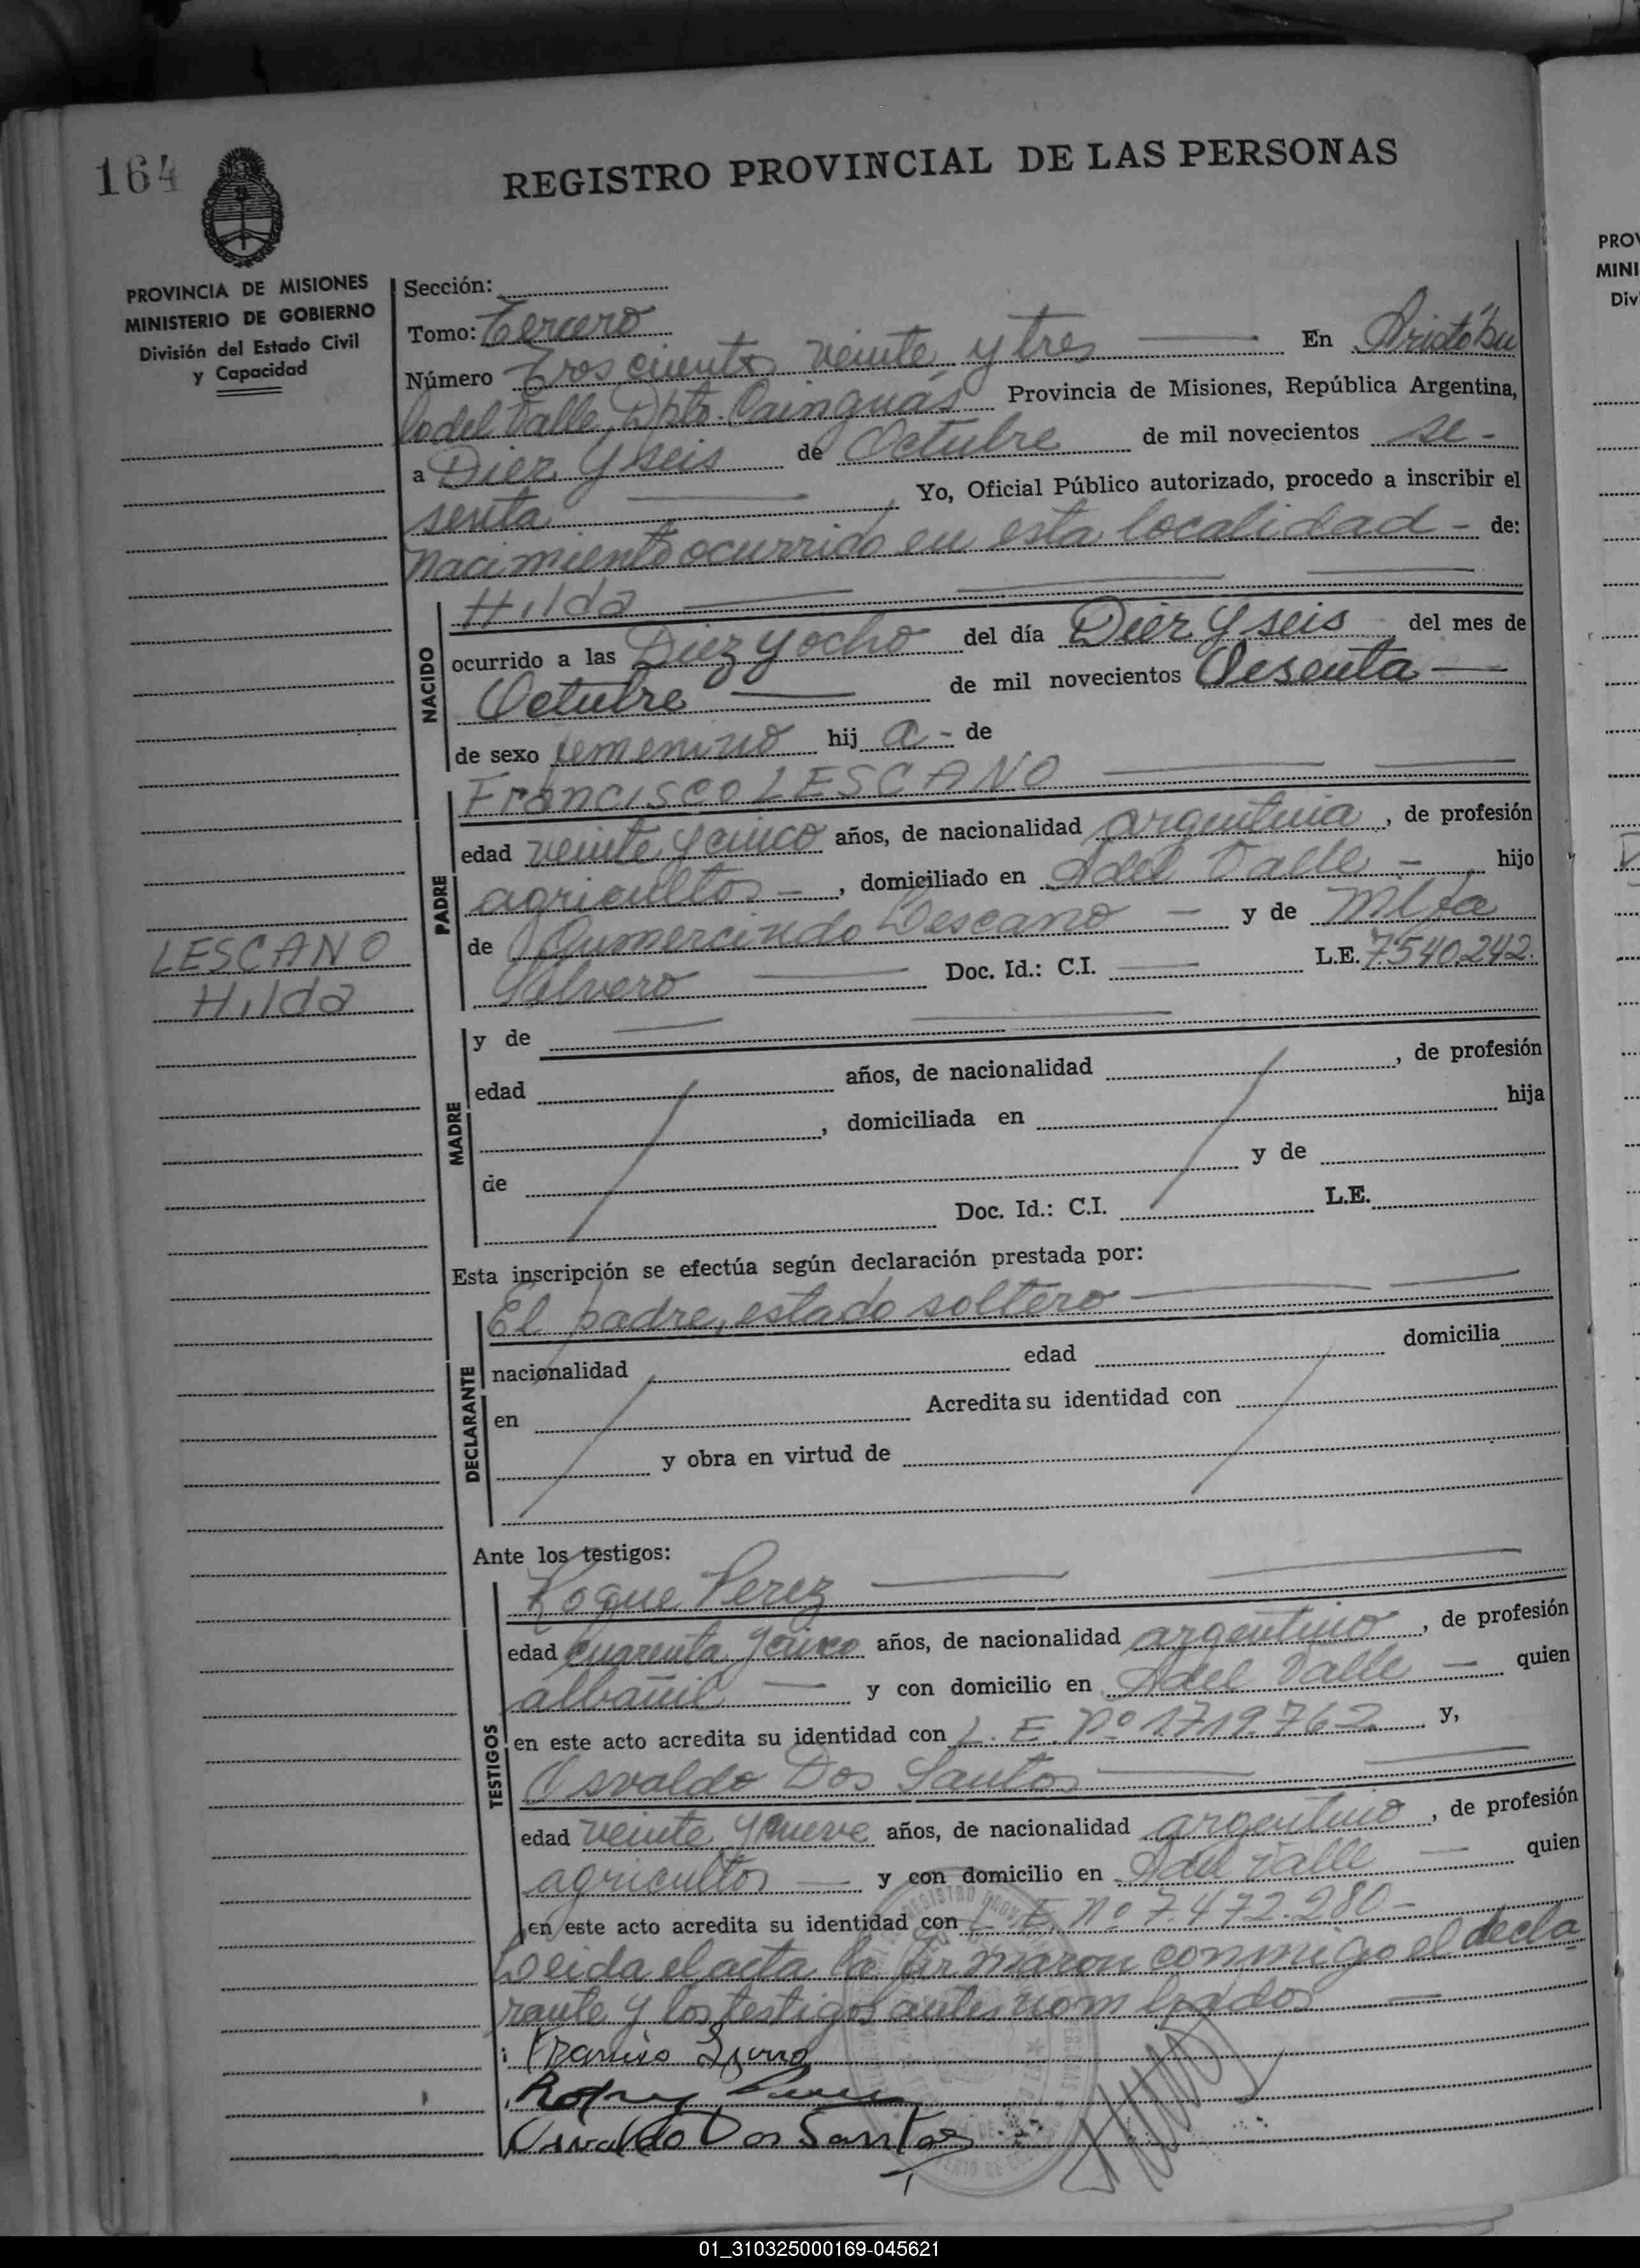 164
REGISTRO PROVINCIAL DE LAS PERSONAS
PROVINCIA DE MISIONES
MINISTERIO DE GOBIERNO
División del Estado Civil
y Capacidad
Sección:
Tomo: Tercero
Número Trescientos veinte y tres En Aristóbu
lo del Valle, Dpto. Cainguás Provincia de Misiones, República Argentina,
a Diez y seis de Octubre de mil novecientos se-
senta Yo, Oficial Público autorizado, procedo a inscribir el
nacimiento ocurrido en esta localidad - de:
NACIDO
Hilda
ocurrido a las Diez y ocho del día Diez y seis del mes de
Octubre de mil novecientos Sesenta
de sexo femenino hij a - de
PADRE
Francisco LESCANO
edad veinte y cinco años, de nacionalidad argentina, de profesión
agricultor -, domiciliado en A del Valle - hijo
de Gumercindo Lescano - y de
Doc. Id.: C.I. L.E. 7540.242.
LESCANO
Hilda
MADRE
y de
edad años, de nacionalidad , de profesión
, domiciliada en hija
de y de
Doc. Id.: C.I. L.E.
Esta inscripción se efectúa según declaración prestada por:
DECLARANTE
El padre, estado soltero
nacionalidad edad domicilia
en Acredita su identidad con
y obra en virtud de
Ante los testigos:
TESTIGOS
Roque Perez
edad cuarenta y cinco años, de nacionalidad argentino, de profesión
albañil y con domicilio en A del Valle - quien
en este acto acredita su identidad con L. E. Nº 1.719.762 y,
Osvaldo Dos Santos
edad veinte y nueve años, de nacionalidad argentino, de profesión
agricultor y con domicilio en A del Valle quien
en este acto acredita su identidad con L. E. nº 7.472.280-
Leida el acta la firmaron conmigo el decla
rante y los testigos antes nombrados
Osvaldo Dos Santos
PROV
MINI
Div
01_310325000169-045621